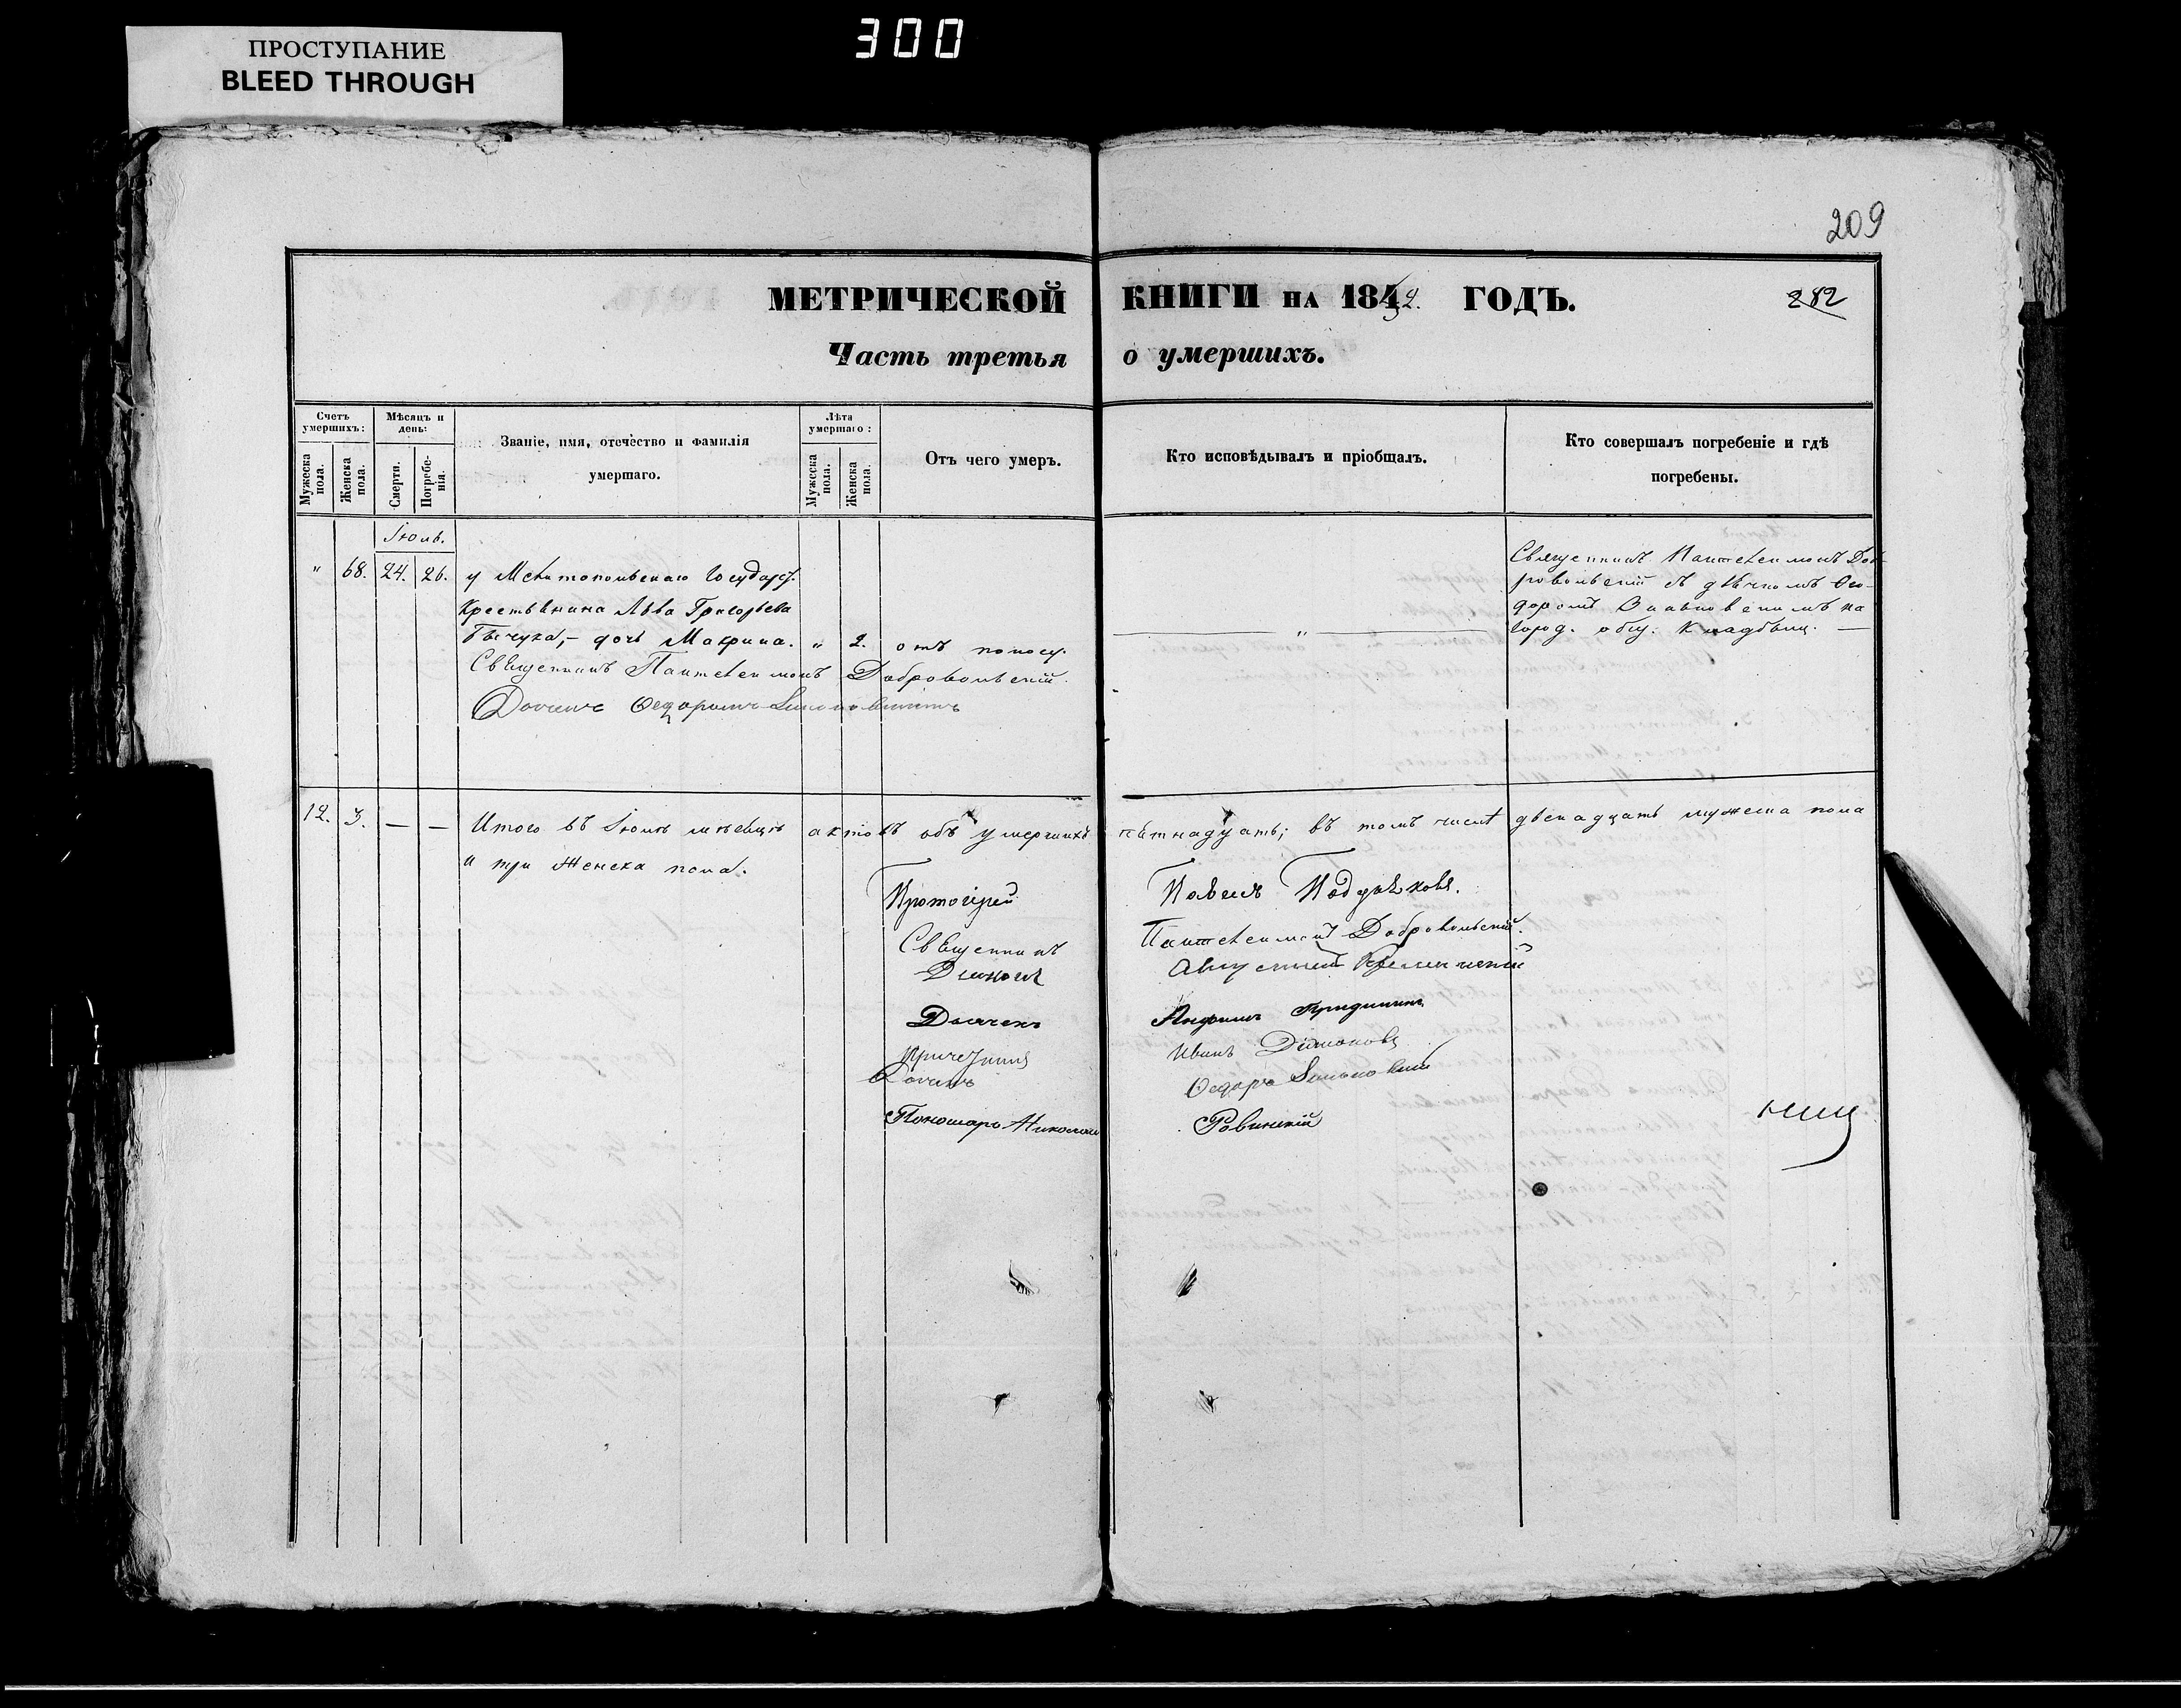 300
ПРОСТУПАНИЕ
BLEED THROUGH
209
МЕТРИЧЕСКОЙ КНИГИ НА 1852. ГОДЪ.
282
Часть третья о умершихъ.
Счетъ умершихъ:
Мужеска пола.
Женска пола.
Мѣсяцъ и день:
Смерти.
Погребенія.
Званіе, имя, отечество и фамилія
умершаго.
Лѣта умершаго:
Мужеска пола.
Женска пола.
Отъ чего умеръ.
Кто исповѣдывалъ и пріобщалъ.
Кто совершалъ погребеніе и гдѣ
погребены.
Іюль.
" 68. 24. 26. у Мелитопольскаго Государс.
Крестьянина Льва Григорьева
дочь Макрина. " 2. отъ поносу.
— " —
Священникъ Пантелеимонъ Доб-
ровольскій съ дьячкомъ Ѳео-
доромъ на
город. общ. кладбищ. —
Священникъ Пантелеимонъ Добровольскій.
Дьячекъ Ѳедоръ
12. 3. — — Итого въ Іюлѣ мѣсяцѣ актовъ объ умершихъ пятнадцать; въ томъ числѣ двенадцать мужеска пола
и три женска пола.
Протоіерей Павелъ
Священникъ Пантелеимонъ Добровольскій.
Діаконъ
Дьячекъ
Иванъ
Дьячекъ Ѳедоръ
Пономарь Николай Ровинскій